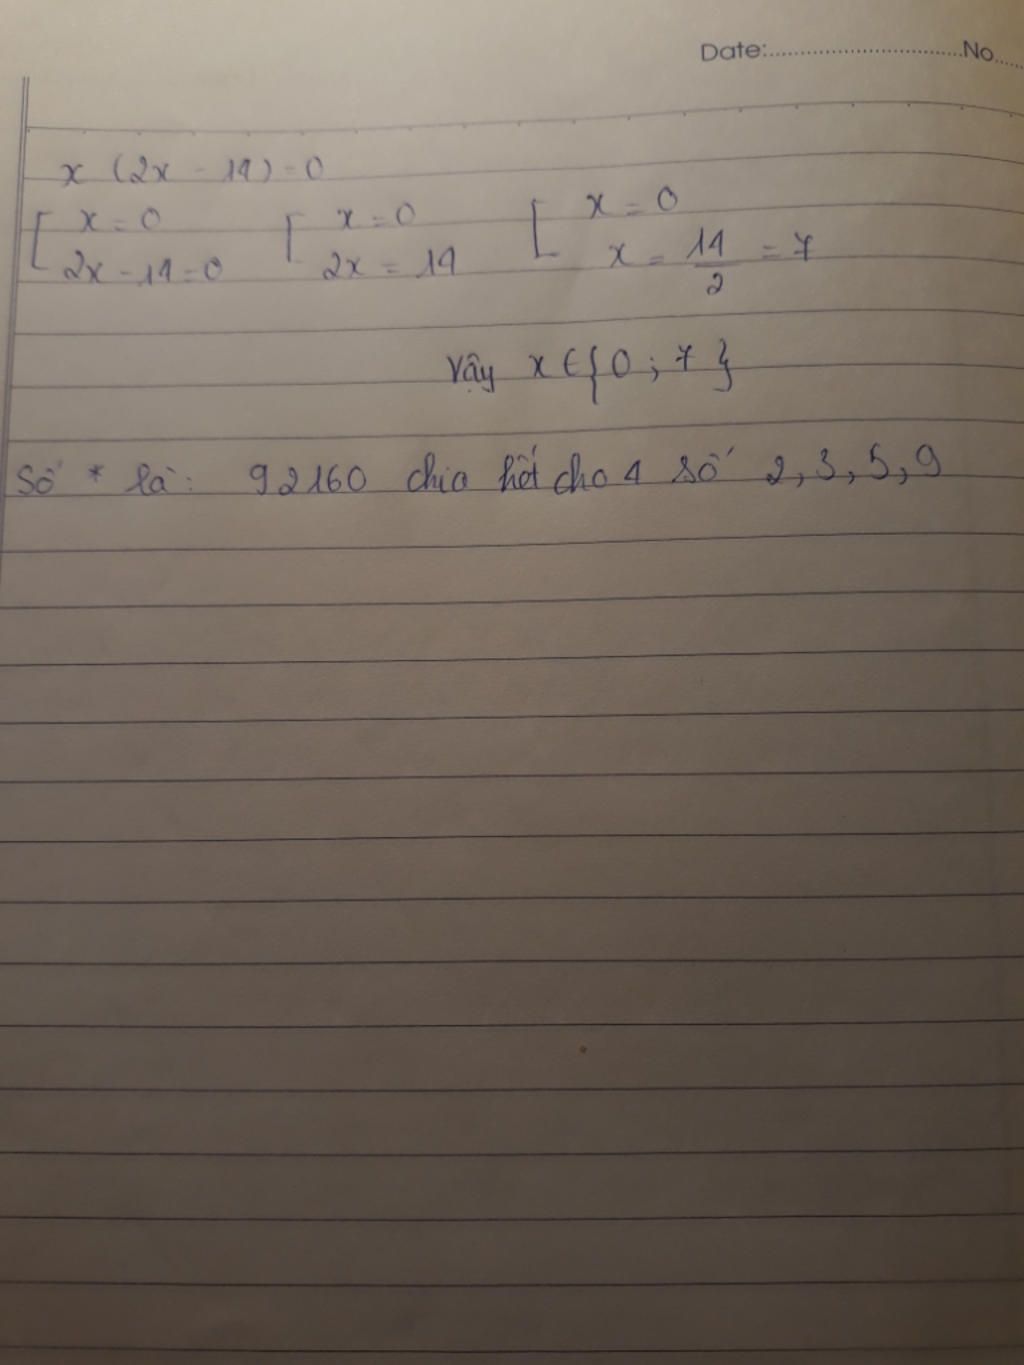 Date:..............................No.....
x (2x - 14) = 0
[ x = 0 [ x = 0 [ x = 0
2x - 14 = 0 2x = 14 x = 14/2 = 7
Vậy x ∈ {0 ; 7}
Số * là: 92160 chia hết cho 4 số 2, 3, 5, 9